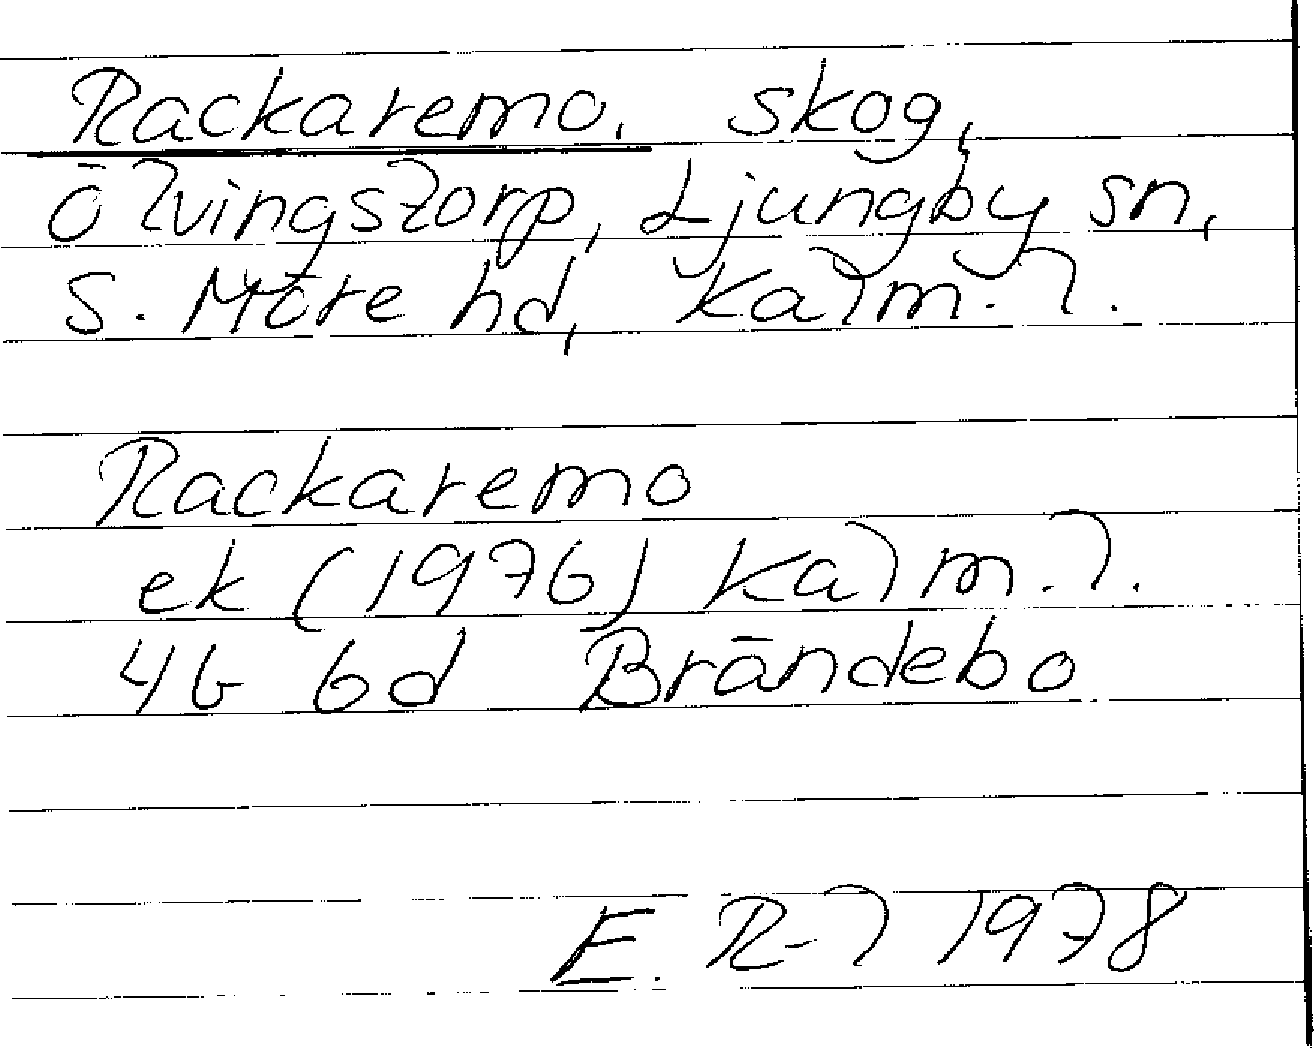 Rackaremo, skog,
Ölvingstorp, Ljungby sn,
S. Möre hd, Kalm. l.
Rackaremo
ek (1976) Kalm. l.
4G 6d Brändebo
E. R-l 1978